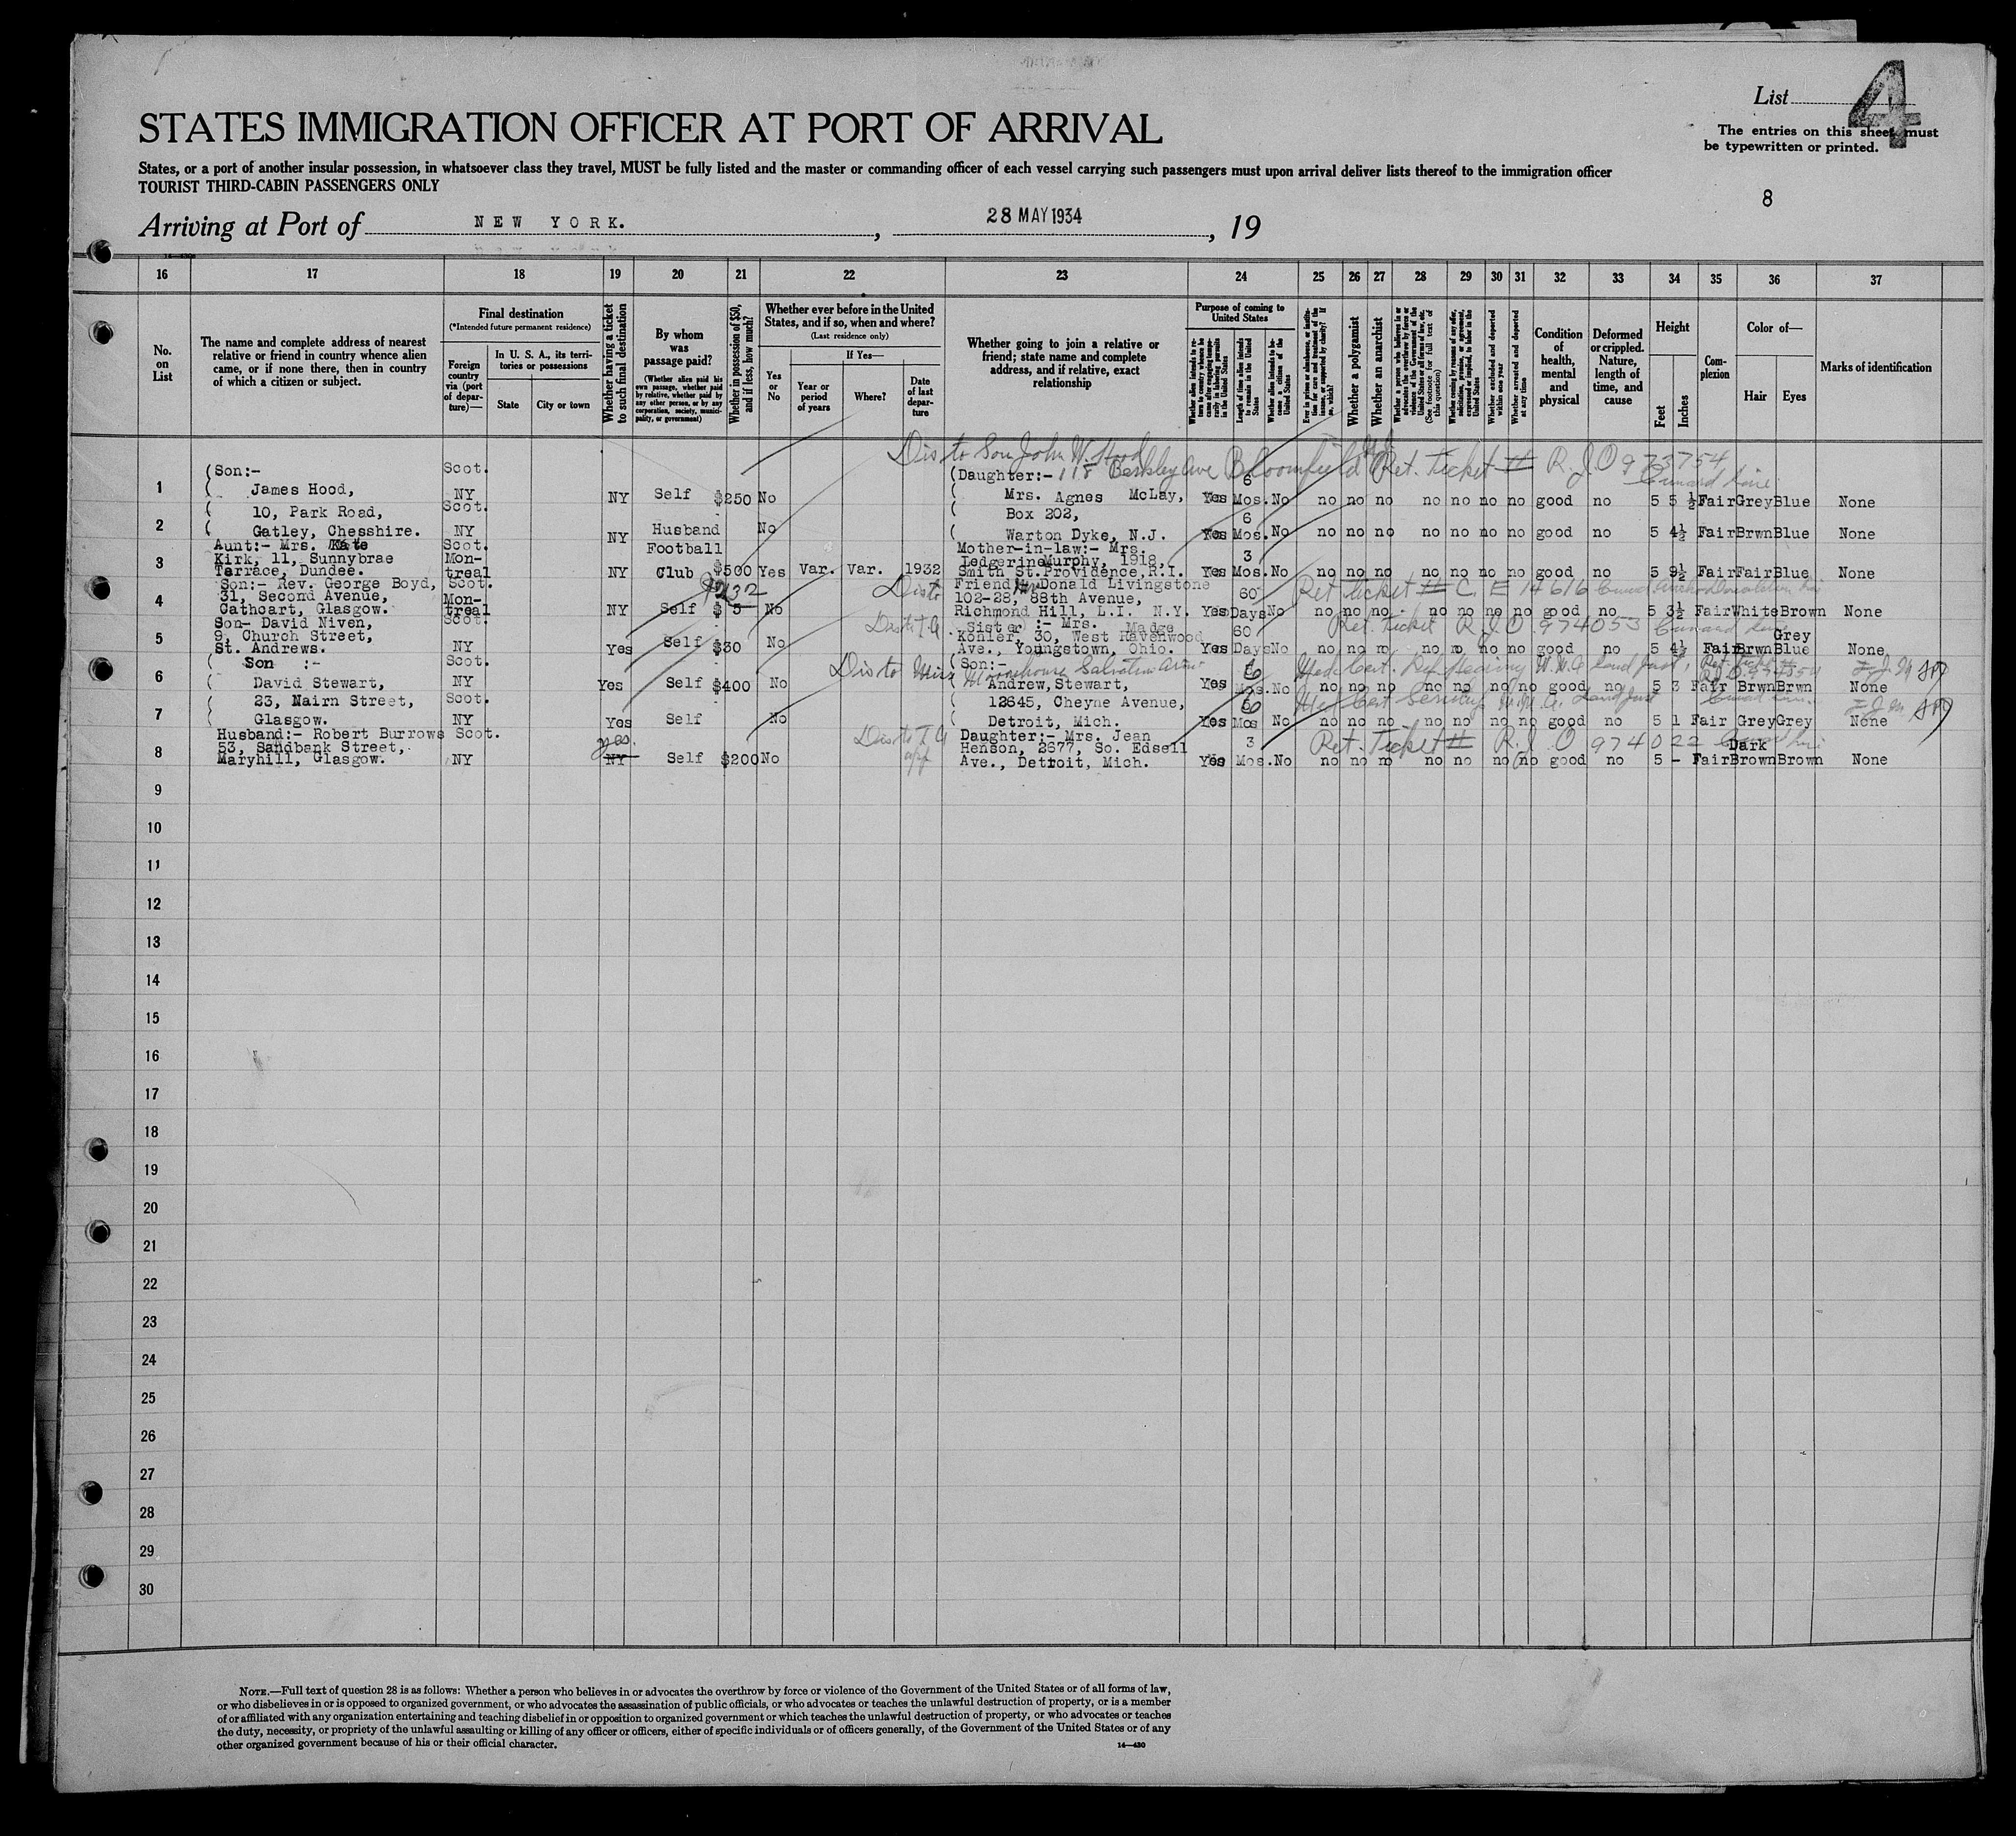 List 4
STATES IMMIGRATION OFFICER AT PORT OF ARRIVAL
The entries on this sheet must
be typewritten or printed.
States, or a port of another insular possession, in whatsoever class they travel, MUST be fully listed and the master or commanding officer of each vessel carrying such passengers must upon arrival deliver lists thereof to the immigration officer
TOURIST THIRD-CABIN PASSENGERS ONLY
8
Arriving at Port of NEW YORK. , 28 MAY 1934 , 19
16 17 18 19 20 21 22 23 24 25 26 27 28 29 30 31 32 33 34 35 36 37
No. on List
The name and complete address of nearest relative or friend in country whence alien came, or if none there, then in country of which a citizen or subject.
Final destination
(*Intended future permanent residence)
Foreign country via (port of departure)—
In U. S. A., its territories or possessions
State
City or town
Whether having a ticket to such final destination
By whom was passage paid?
(Whether alien paid his own passage, whether paid by relative, whether paid by any other person, or by any corporation, society, municipality, or government)
Whether in possession of $50, and if less, how much?
Whether ever before in the United States, and if so, when and where?
(Last residence only)
Yes or No
If Yes—
Year or period of years
Where?
Date of last departure
Whether going to join a relative or friend; state name and complete address, and if relative, exact relationship
Purpose of coming to United States
Length of time alien intends to remain in the United States
Whether alien intends to become a citizen of the United States
Whether a polygamist
Whether an anarchist
(See footnote for full text of this question)
Whether excluded and deported within one year
Whether arrested and deported at any time
Condition of health, mental and physical
Deformed or crippled. Nature, length of time, and cause
Height
Feet
Inches
Complexion
Color of—
Hair
Eyes
Marks of identification
Dis to Son John W. Hood
118 Berkley Ave Bloomfield NJ Ret. Ticket # R.J.O 973754
Cunard Line
1 (Son:- James Hood, Scot. NY NY Self $250 No (Daughter:- Mrs. Agnes McLay, Yes 6 Mos. No no no no no no no no good no 5 5½ Fair Grey Blue None
2 10, Park Road, Gatley, Chesshire. Scot. NY NY Husband No Box 202, Warton Dyke, N.J. Yes 6 Mos. No no no no no no no no good no 5 4½ Fair Brwn Blue None
3 Aunt:- Mrs. Kate Kirk, 11, Sunnybrae Terrace, Dundee. Scot. Montreal NY Football Club $500 Yes Var. Var. 1932 Mother-in-law:- Mrs. Ledgerine Murphy, 1918, Smith St. Providence, R.I. Yes 3 Mos. No no no no no no no no good no 5 9½ Fair Fair Blue None
Dis to Ret Ticket # C. E 14616
4 Son:- Rev. George Boyd, 31, Second Avenue, Cathcart, Glasgow. Scot. Montreal NY Self $ 5 No Friend Donald Livingstone 102-28, 88th Avenue, Richmond Hill, L.I. N.Y. Yes 60 Days No no no no no no no no good no 5 3½ Fair White Brown None
Ret. Ticket R.J.O 974053 Cunard Line
5 Son- David Niven, 9, Church Street, St. Andrews. Scot. NY Yes Self $30 No Sister :- Mrs. Madge Kohler, 30, West Ravenwood Ave., Youngstown, Ohio. Yes 60 Days No no no no no no no no good no 5 4½ Fair Grey Brwn Blue None
Dis to Miss Salvation Army
6 Son :- David Stewart, Scot. NY Yes Self $400 No (Son:- Andrew Stewart, Yes 6 Mos. No no no no no no no no good no 5 3 Fair Brwn Brwn None
7 23, Nairn Street, Glasgow. Scot. NY Yes Self No 12645, Cheyne Avenue, Detroit, Mich. Yes 6 Mos No no no no no no no no good no 5 1 Fair Grey Grey None
Ret. Ticket # R.J.O 974022
8 Husband:- Robert Burrows 53, Sandbank Street, Maryhill, Glasgow. Scot. NY yes NY Self $200 No Daughter:- Mrs. Jean Henson, 2677, So. Edsell Ave., Detroit, Mich. Yes 3 Mos. No no no no no no no no good no 5 - Fair Dark Brown Brown None
9
10
11
12
13
14
15
16
17
18
19
20
21
22
23
24
25
26
27
28
29
30
NOTE.—Full text of question 28 is as follows: Whether a person who believes in or advocates the overthrow by force or violence of the Government of the United States or of all forms of law,
or who disbelieves in or is opposed to organized government, or who advocates the assassination of public officials, or who advocates or teaches the unlawful destruction of property, or is a member
of or affiliated with any organization entertaining and teaching disbelief in or opposition to organized government or which teaches the unlawful destruction of property, or who advocates or teaches
the duty, necessity, or propriety of the unlawful assaulting or killing of any officer or officers, either of specific individuals or of officers generally, of the Government of the United States or of any
other organized government because of his or their official character.
14—430